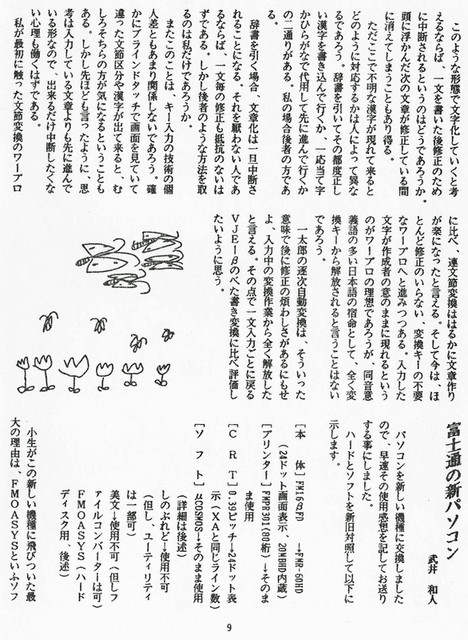 このような形態で文字化していくと考
えるならば、一文を書いた後修正のため
に中断されるというのはどうであろうか。
頭に浮かんだ次の文章が修正している間
に消えてしまうこともあり得る。
ただここで不明な漢字が現れて来ると
どのように対応するかは人によって異な
るであろう。辞書を引いてその都度正し
い漢字を書き込んで行くか、一応当て字
かひらがなで代用して先に進んで行くか
の二通りがある。私の場合後者の方であ
る。
辞書を引く場合、文章化は一旦中断さ
れることになる。それを厭わない人であ
るならば、一文毎の修正も抵抗のないは
ずである。しかし後者のような方法を取
るのは私だけであろうか。
またこのことは、キー入力の技術の個
人差ともあまり関係しないであろう。確
かにブラインドタッチで画面を見ていて
違った文節区分や漢字が出て来ると、む
しろそちらの方が気になるということも
ある。しかし先ほども言ったように、思
考は入力している文章よりも先に進んで
いる形なので、出来るだけ中断したくな
い心理も働くはずである。
私が最初に触った文節変換のワープロ
に比べ、連文節変換ははるかに文章作り
が楽になったと言える。そして今は、ほ
とんど修正のいらない、変換キーの不要
なワープロへと進みつつある。入力した
文字が作成者の意のままに現れるという
のがワープロの理想であろうが、同音意
義語の多い日本語の宿命として、全く変
換キーから解放されると言うことはない
であろう。
一太郎の逐次自動変換は、そういった
意味で後に修正の煩わしさがあるにもせ
よ、入力中の変換作業から全く解放した
と言える。その点で一文入力ごとに戻る
ＶＪＥ－βのべた書き変換に比べ評価し
たいように思う。
富士通の新パソコン
武井 和人
パソコンを新しい機種に交換しました
ので、早速その使用感想を記してお送り
する事にしました。
ハードとソフトを新旧対照して以下に
示します。
［本　体］FM16βFD →FMR-60HD
（24ドット画面表示、20MBHD内蔵）
［プリンター］FMPR301(80桁)→そのま
ま使用
［ＣＲＴ］0.39ピッチ→24ドット表
示（ＸＡと同じライン数）
［ソフト］μCOSMOS→そのまま使用
（詳細は後述）
しのぶれど→使用不可
（但し、ユーティリティ
は一部可）
美文→使用不可（但しフ
ァイルコンバーターは可）
ＦＭＯＡＳＹＳ（ハード
ディスク用、後述）
小生がこの新しい機種に飛びついた最
大の理由は、ＦＭＯＡＳＹＳというソフ
9